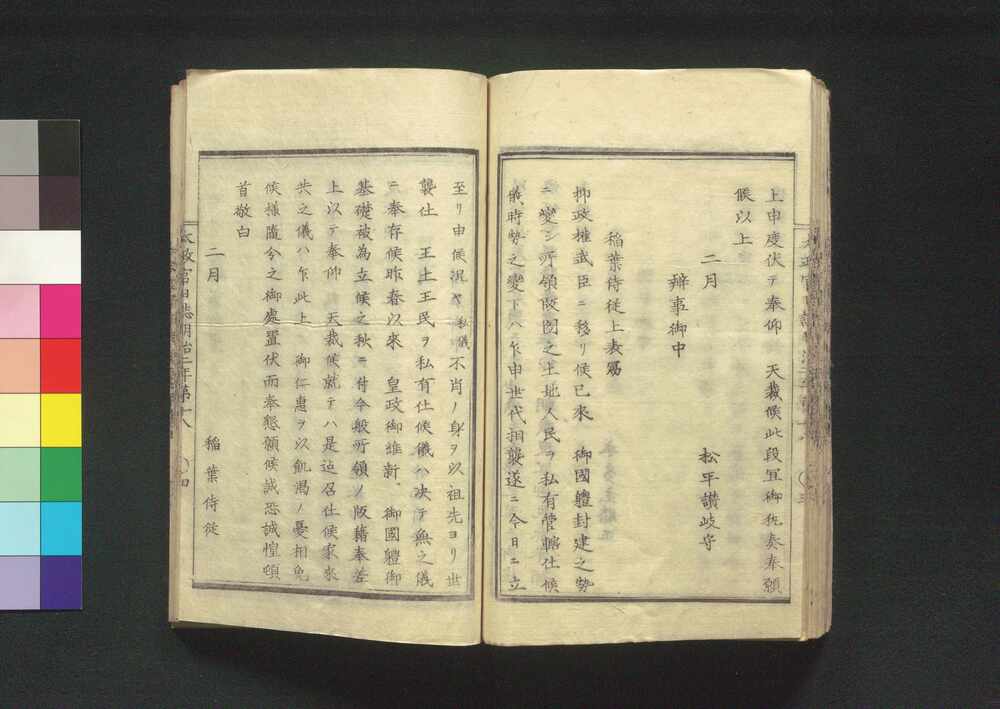 上申度伏テ奉仰　天裁候此段宜御執奏奉願
候以上
二月　松平讃岐守
辨事御中
稲葉侍従上表寫
抑政權武臣ニ移リ候已来　御國軆封建之勢
ニ變シ所領版圖之土地人民ヲ私有管轄仕候
儀時勢之變下ハ乍申世代相襲遂ニ今日ニ立
至リ申候況ヤ私儀不肖ノ身ヲ以祖先ヨリ世
襲仕　王土王民ヲ私有仕候儀ハ决テ無之儀
ニ奉存候昨春以来　皇政御維新、御國軆御
基礎被為立候之秋ニ付今般所領ノ版籍奉差
上以テ奉仰　天裁候就テハ是迠召仕候家来
共之儀ハ乍此上　御仁惠ヲ以飢渇ノ憂相免
候様隨分之御處置伏而奉懇願候誠恐誠惶頓
首敬白
二月　稲葉侍従
太政官日誌明治二年第十八　四